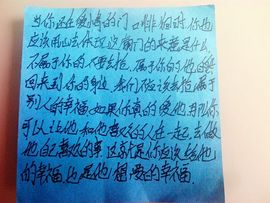 当你还在爱情的门口徘徊时 你也
应该用心去体现这扇门的来意是什么
不属于你的不要去抢 属于你的他总会
回来到你的身边 我们不应该去抢属于
别人的幸福 如果你真的爱他 那你
可以让他和他喜欢的人在一起 去做
他自己喜欢的事 这就是你应该给他
的幸福 也是他想要的幸福.